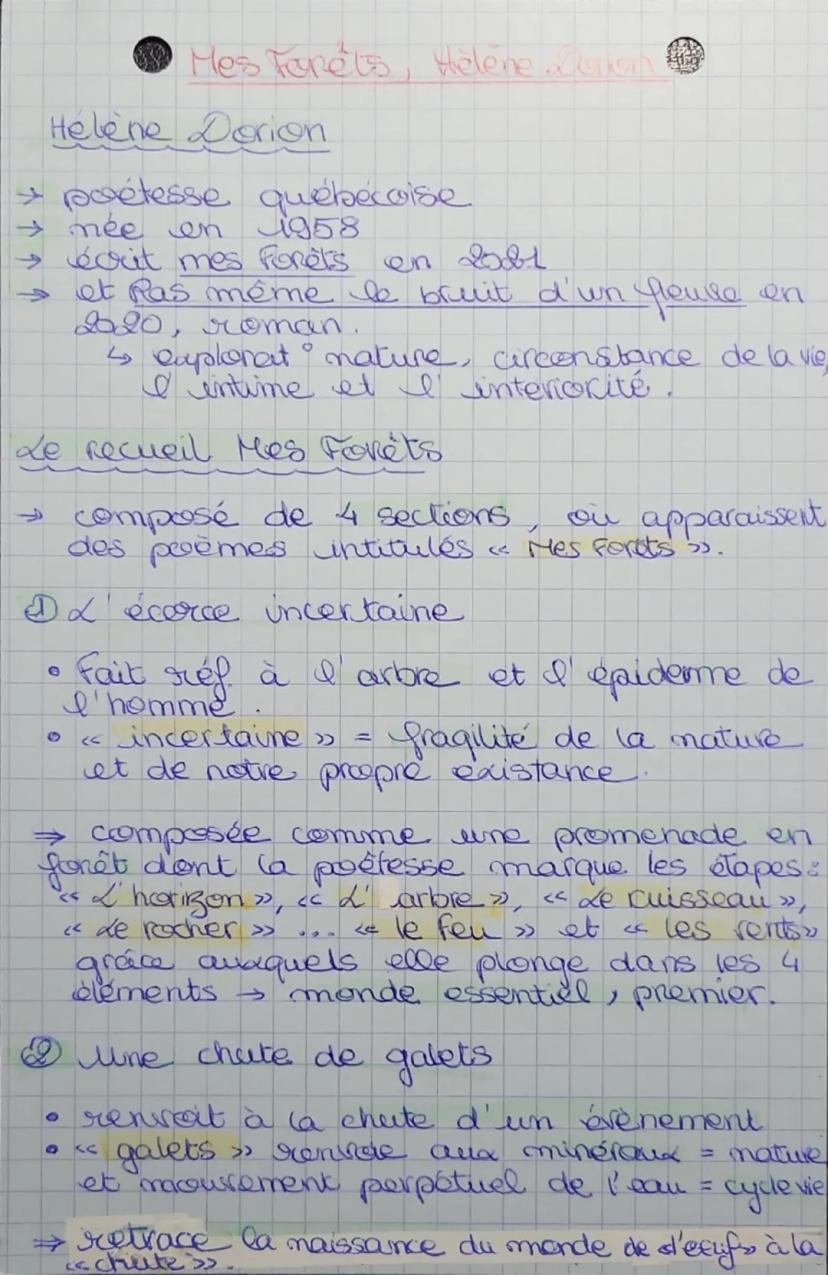 Mes Forêts, Hélène Dorion
Hélène Dorion
→ poétesse québécoise
→ née en 1958
→ écrit mes forêts en 2021
→ et Pas même le bruit d'un fleuve en
2020, roman.
↳ explorat° nature, circonstance de la vie,
l'intime et l'interiorité.
Le recueil Mes Forêts
→ composé de 4 sections, où apparaissent
des poèmes intitulés « Mes forêts ».
① L'écorce incertaine
• fait réf à l'arbre et l'épiderme de
l'homme.
• « incertaine » = fragilité de la nature
et de notre propre existance.
⇒ composée comme une promenade en
forêt dont la poétesse marque les étapes :
« L'horizon », « L'arbre », « Le ruisseau »,
« Le rocher » ... « le feu » et « les vents »
grâce auxquels elle plonge dans les 4
éléments → monde essentiel, premier.
② Une chute de galets
• renvoit à la chute d'un évènement
• « galets » renvoie aux minéraux = nature
et mouvement perpétuel de l'eau = cycle vie
⇒ retrace la naissance du monde de à la
« chute ».